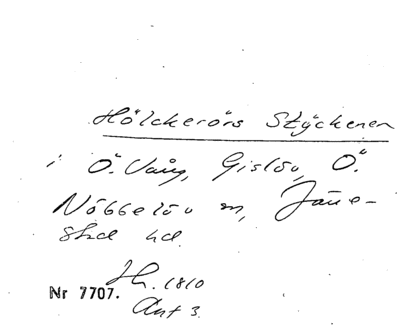 Hölckerörs Styckenen
i Ö. Vång, Gislöv, Ö.
Nöbbelöv m,
hd.
Nr 7707.
1810
Ant 3.